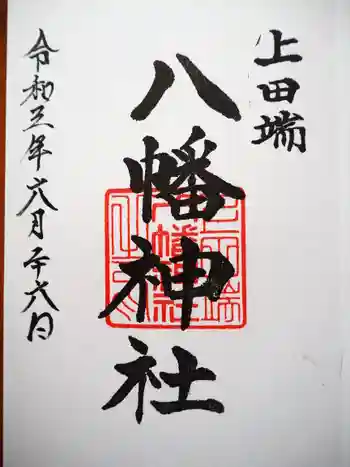 上田端
八幡神社
令和五年六月二十六日